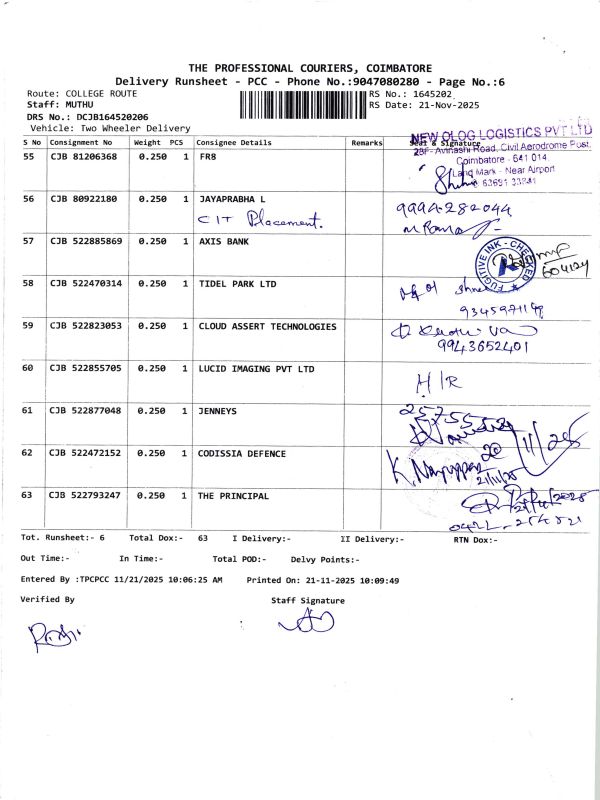 THE PROFESSIONAL COURIERS, COIMBATORE
Delivery Runsheet - PCC - Phone No.:9047080280 - Page No.:6
Route: COLLEGE ROUTE RS No.: 1645202
Staff: MUTHU RS Date: 21-Nov-2025
DRS No.: DCJB164520206
Vehicle: Two Wheeler Delivery
S No Consignment No Weight PCS Consignee Details Remarks Seal & Signature
NEW OLOG LOGISTICS PVT LTD
Avinashi Road, Civil Aerodrome Post,
Coimbatore - 641 014.
Land Mark - Near Airport
55 CJB 81206368 0.250 1 FR8
56 CJB 80922180 0.250 1 JAYAPRABHA L
CIT Placement. 9994-282044
57 CJB 522885869 0.250 1 AXIS BANK
FUGITIVE INK - CHECKED
58 CJB 522470314 0.250 1 TIDEL PARK LTD
59 CJB 522823053 0.250 1 CLOUD ASSERT TECHNOLOGIES
9943652401
60 CJB 522855705 0.250 1 LUCID IMAGING PVT LTD
H/R
61 CJB 522877048 0.250 1 JENNEYS
62 CJB 522472152 0.250 1 CODISSIA DEFENCE
21/11/25
63 CJB 522793247 0.250 1 THE PRINCIPAL
Tot. Runsheet:- 6 Total Dox:- 63 I Delivery:- II Delivery:- RTN Dox:-
Out Time:- In Time:- Total POD:- Delvy Points:-
Entered By :TPCPCC 11/21/2025 10:06:25 AM Printed On: 21-11-2025 10:09:49
Verified By Staff Signature